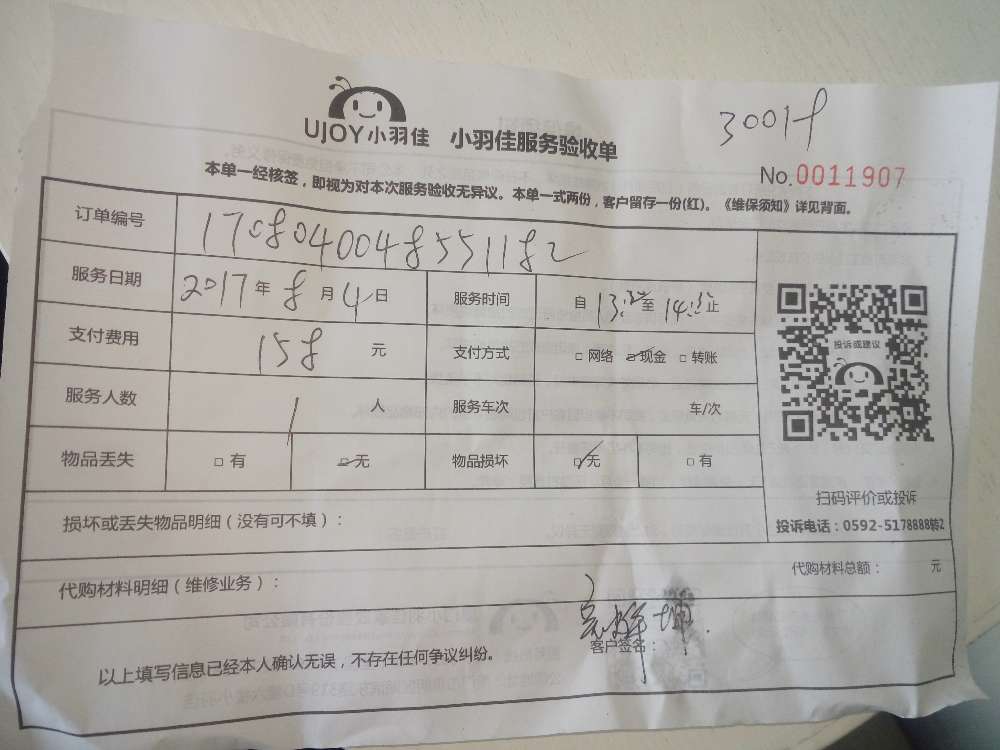 3001f
UJOY小羽佳 小羽佳服务验收单
No.0011907
本单一经核签，即视为对本次服务验收无异议。本单一式两份，客户留存一份(红)。《维保须知》详见背面。
订单编号 1708040048551182
服务日期 2017年8月4日 服务时间 自13:30至14:30止
支付费用 158元 支付方式 □网络 ☑现金 □转账
投诉或建议
服务人数 1人 服务车次 车/次
物品丢失 □有 ☑无 物品损坏 ☑无 □有
扫码评价或投诉
投诉电话：0592-5178888转2
损坏或丢失物品明细（没有可不填）：
代购材料明细（维修业务）： 代购材料总额： 元
以上填写信息已经本人确认无误，不存在任何争议纠纷。 客户签名：